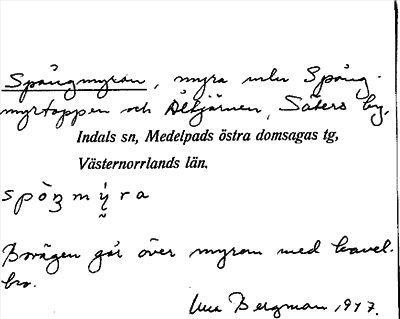 Spångmyran, myra mln Spång-
myrtoppen och Åltjärnen, Säters by,
Indals sn, Medelpads östra domsagas tg,
Västernorrlands län.
Bovägen går över myran med kavel-
bro.
Bergman 1917.